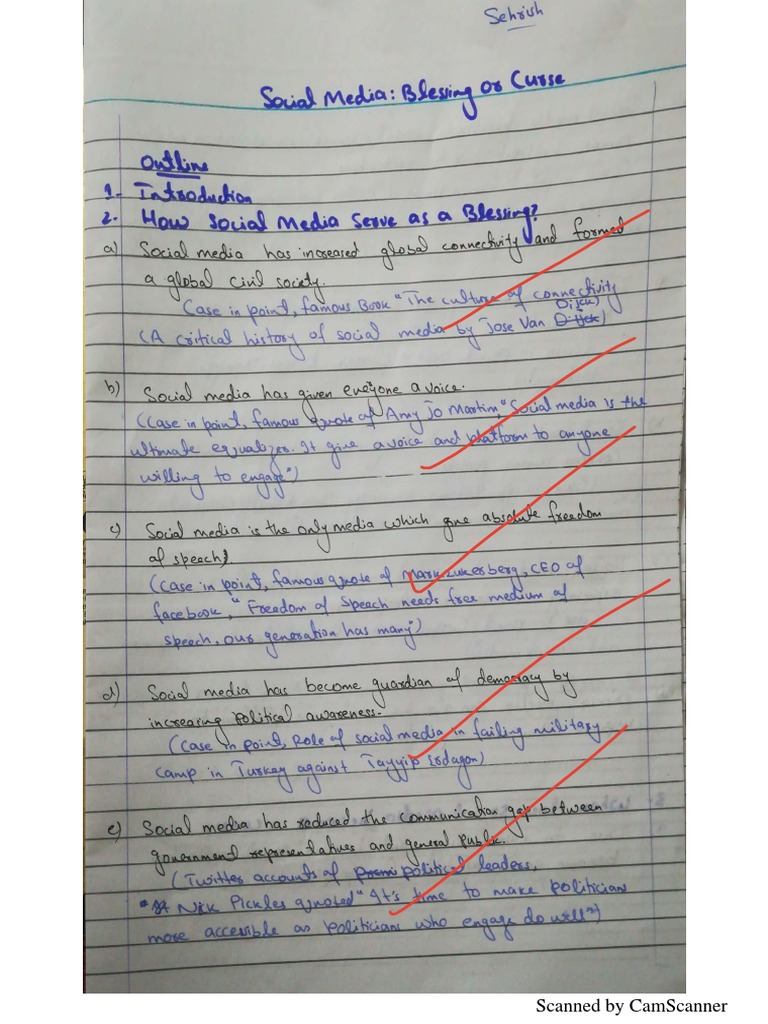 Sehrish
Social Media: Blessing or Curse
Outline
1- Introduction
2. How Social Media Serve as a Blessing?
a) Social media has increased global connectivity and formed
a global civil society.
Case in point, famous Book "The culture of connectivity
(A critical history of social media by Jose Van Dijck)
b) Social media has given everyone a voice.
(Case in point, famous quote of Amy Jo Martin, "Social media is the
ultimate equalizer. It give a voice and platform to anyone
willing to engage")
c) Social media is the only media which give absolute freedom
of speech)
(Case in point, famous quote of Mark Zukerberg, CEO of
facebook, "Freedom of speech needs free medium of
speech, our generation has many")
d) Social media has become guardian of democracy by
increasing political awareness.
(Case in point, Role of social media in failing military
camp in Turkey against Tayyip Erdagon)
e) Social media has reduced the communication gap between
government representatives and general public.
(Twitter accounts of political leaders,
Nick Pickles quoted "It's time to make politician
more accessible as politicians who engage do well")
Scanned by CamScanner